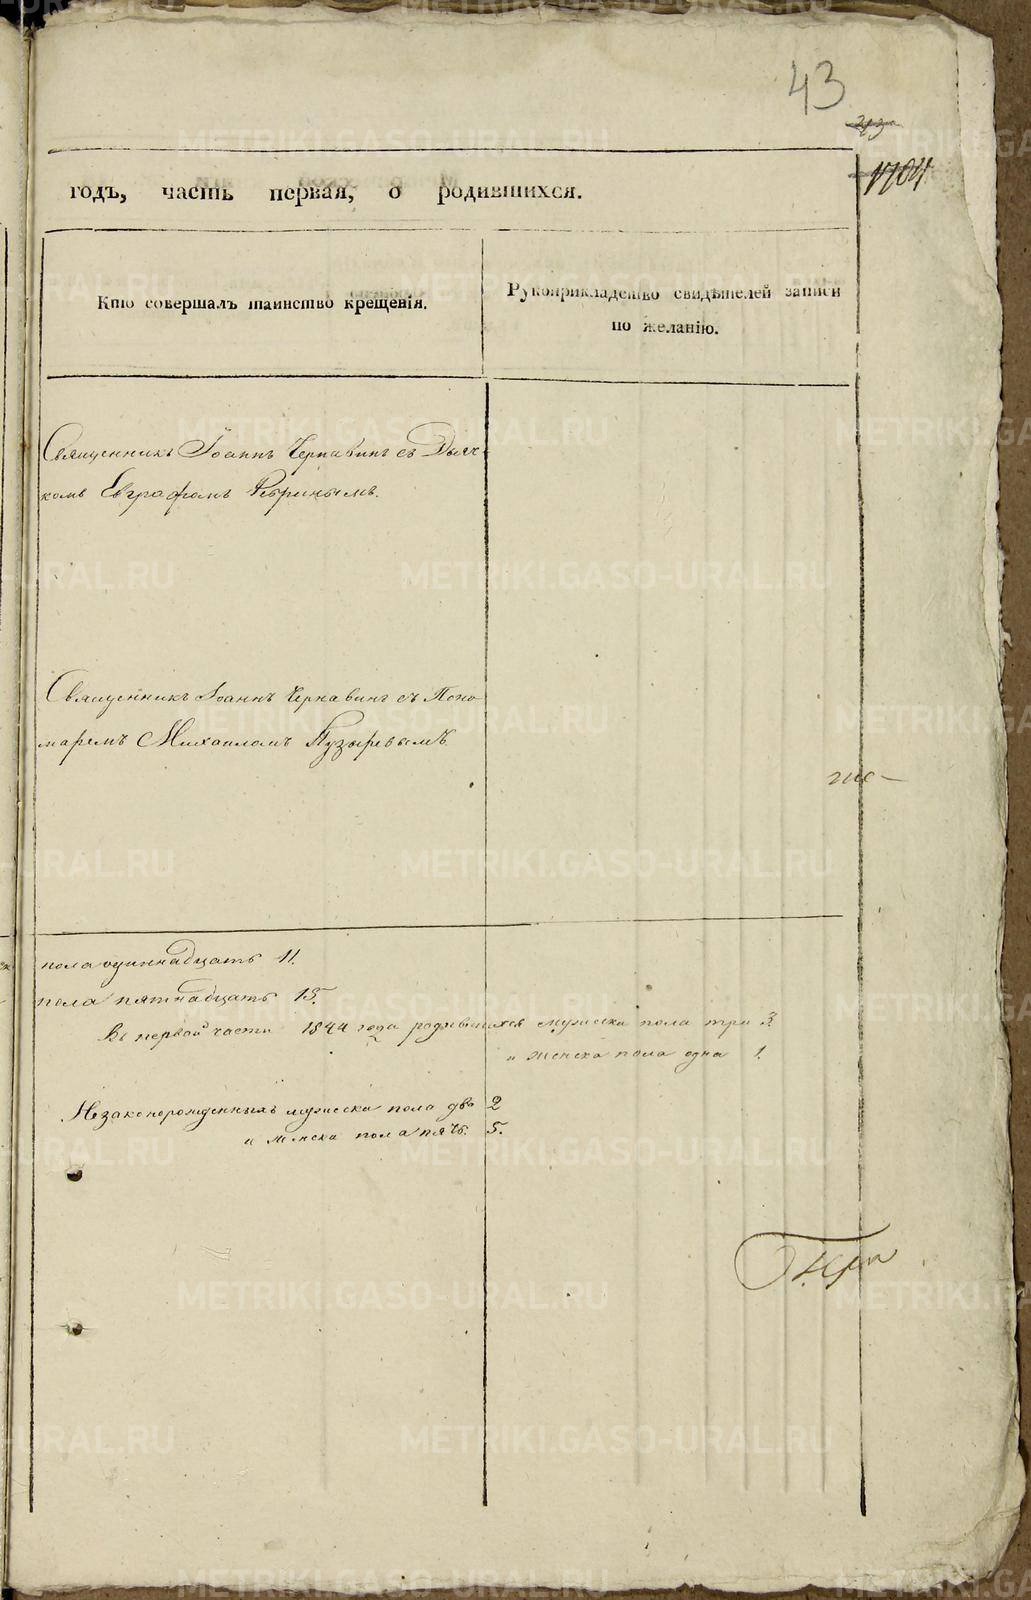 43
43
1704
годъ, часть первая, о родившихся.
Кто совершалъ таинство крещенія.
Рукоприкладство свидѣтелей записи
по желанію.
Священникъ Іоаннъ Чернавинъ съ Дьяч-
комъ Евграфомъ
Священникъ Іоаннъ Чернавинъ съ Поно-
маремъ Михаиломъ Пузыревымъ.
пола одиннадцать 11.
пола пятнадцать 15.
Въ первой части 1844 года родившихся мужеска пола три 3.
и женска пола одна 1.
Незаконорожденныхъ мужеска пола два 2
и женска пола пять. 5.
METRIKI.GASO-URAL.RU